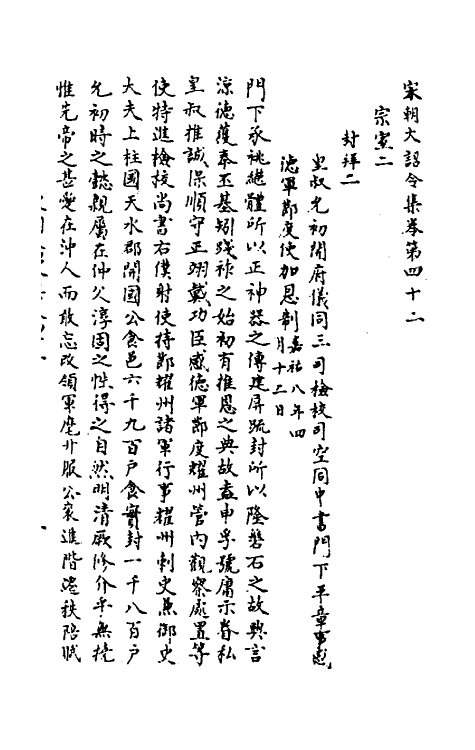 宋朝大詔令集卷第四十二
宗室二
封拜二
皇叔允初開府儀同三司檢校司空同中書門下平章事感
德軍節度使加恩制嘉祐八年四月十二日
門下承祧繼體所以正神器之傳建屏疏封所以隆磐石之故典言
涼德獲奉丕基矧踐祚之始初有推恩之典故盍申孚號庸示眷私
皇叔推誠保順守正翊戴功臣感德軍節度耀州管內觀察處置等
使特進檢校尚書右僕射使持節耀州諸軍行事耀州刺史兼御史
大夫上柱國天水郡開國公食邑六千九百戶食實封一千八百戶
允初時之懿親屬在仲父淳固之性得之自然明清厥修介乎無撓
惟先帝之甚愛在沖人而敢忘改領軍麾升服公袞進階濬秩陪賦